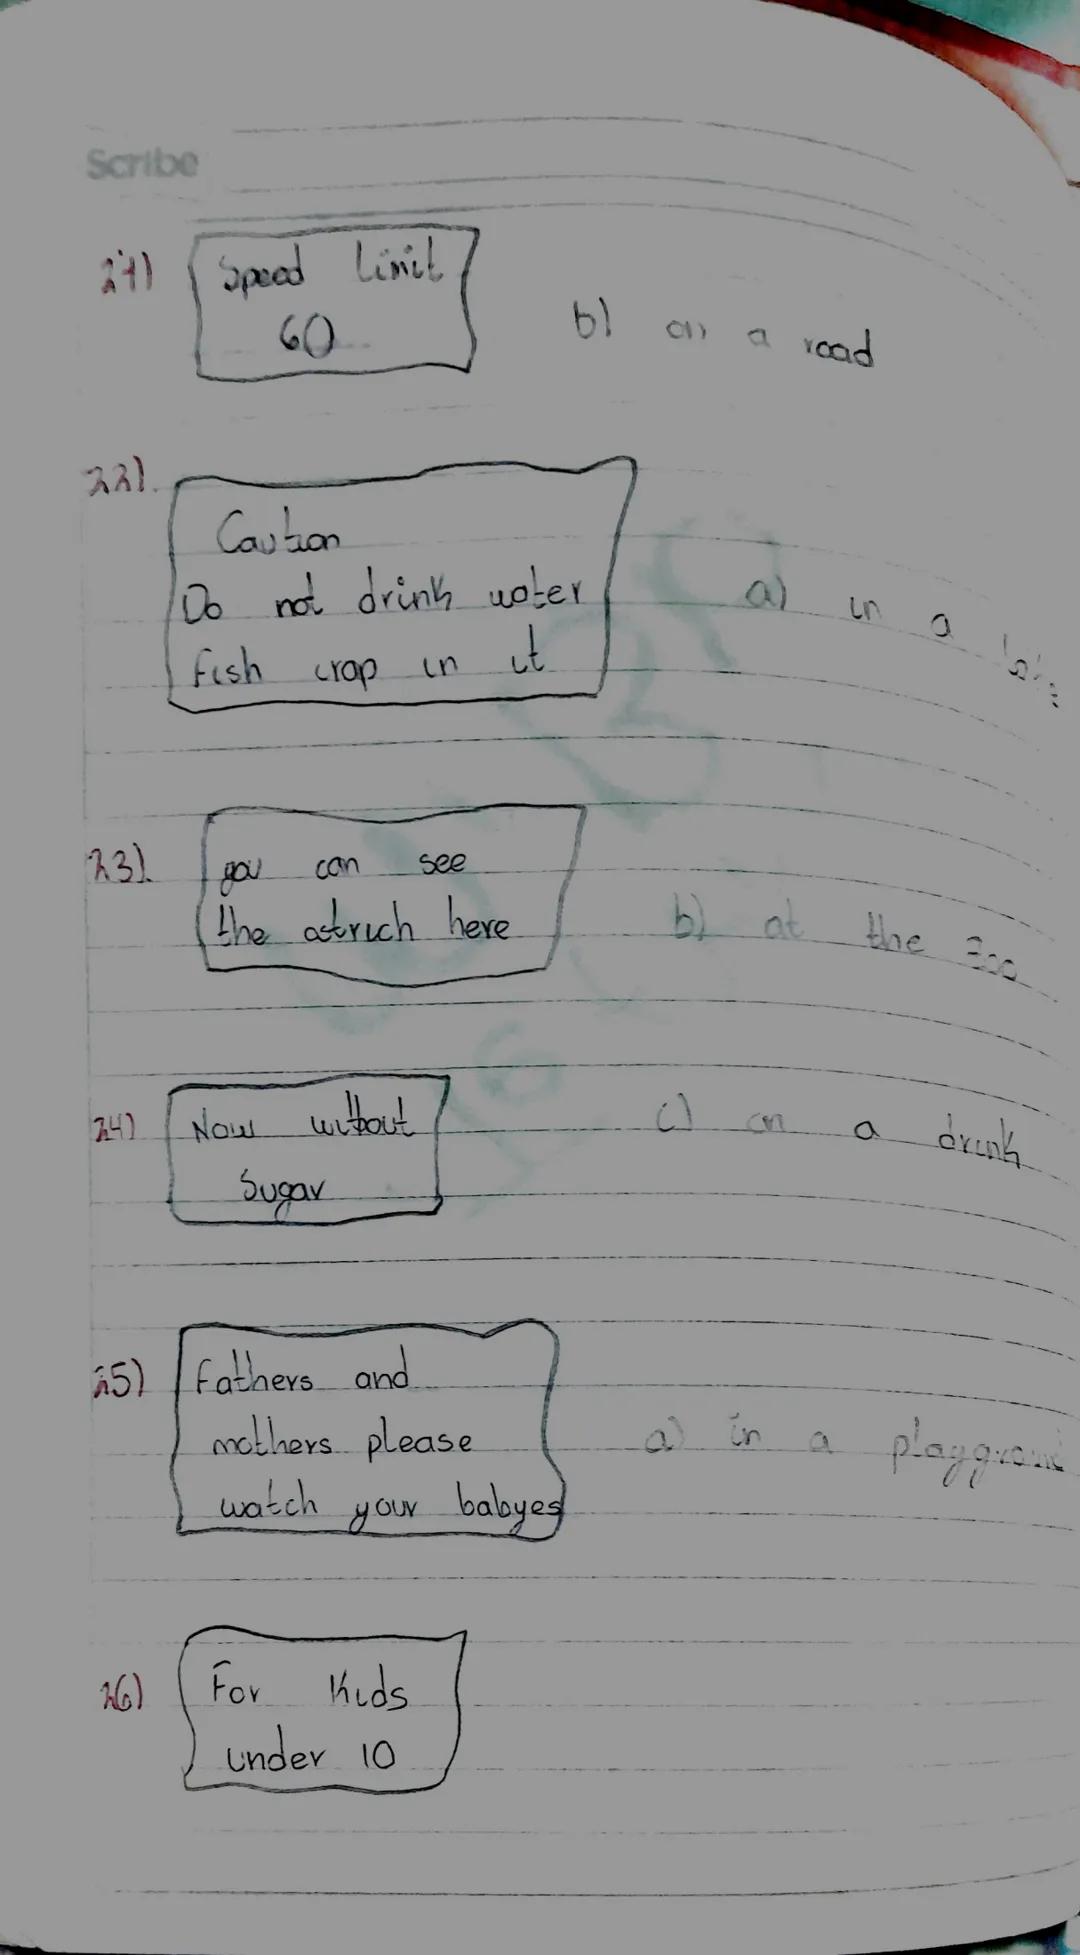 Scribe
21) Speed Limit
60
b) on a road
22).
Caution
Do not drink water
fish crap in it
a) in a lake
23). you can see
the astrich here
b) at the zoo
24) Now without
Sugar
c) on a drink
25) Fathers and
mothers please
watch your babyes
a) in a playground
26) For Kids
under 10